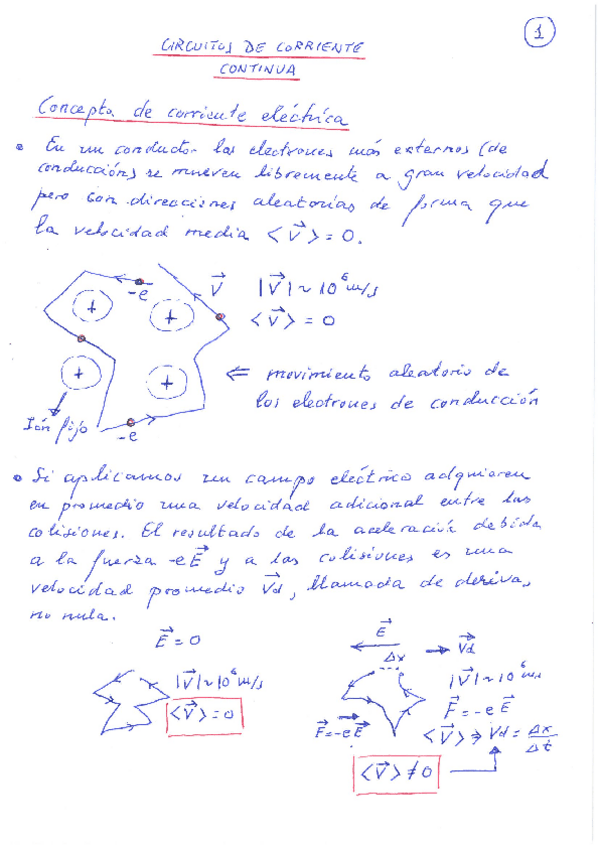 1
CIRCUITOS DE CORRIENTE
CONTINUA
Concepto de corriente eléctrica
• En un conductor los electrones más externos (de
conducción) se mueven libremente a gran velocidad
pero con direcciones aleatorias de forma que
la velocidad media <V⃗> = 0.
-e V⃗ |V⃗| ~ 10⁶ m/s
+ + <V⃗> = 0
+ + ⇐ movimiento aleatorio de
los electrones de conducción
Ión fijo -e
• Si aplicamos un campo eléctrico adquieren
en promedio una velocidad adicional entre las
colisiones. El resultado de la aceleración debida
a la fuerza -eE⃗ y a las colisiones es una
velocidad promedio V⃗d, llamada de deriva,
no nula.
E⃗ = 0 E⃗ V⃗d
Δx
|V⃗| ~ 10⁶ m/s |V⃗| ~ 10⁶ m/s
<V⃗> = 0 F⃗ = -e E⃗
F⃗ = -e E⃗ <V⃗> ⇒ Vd = Δx/Δt
<V⃗> ≠ 0